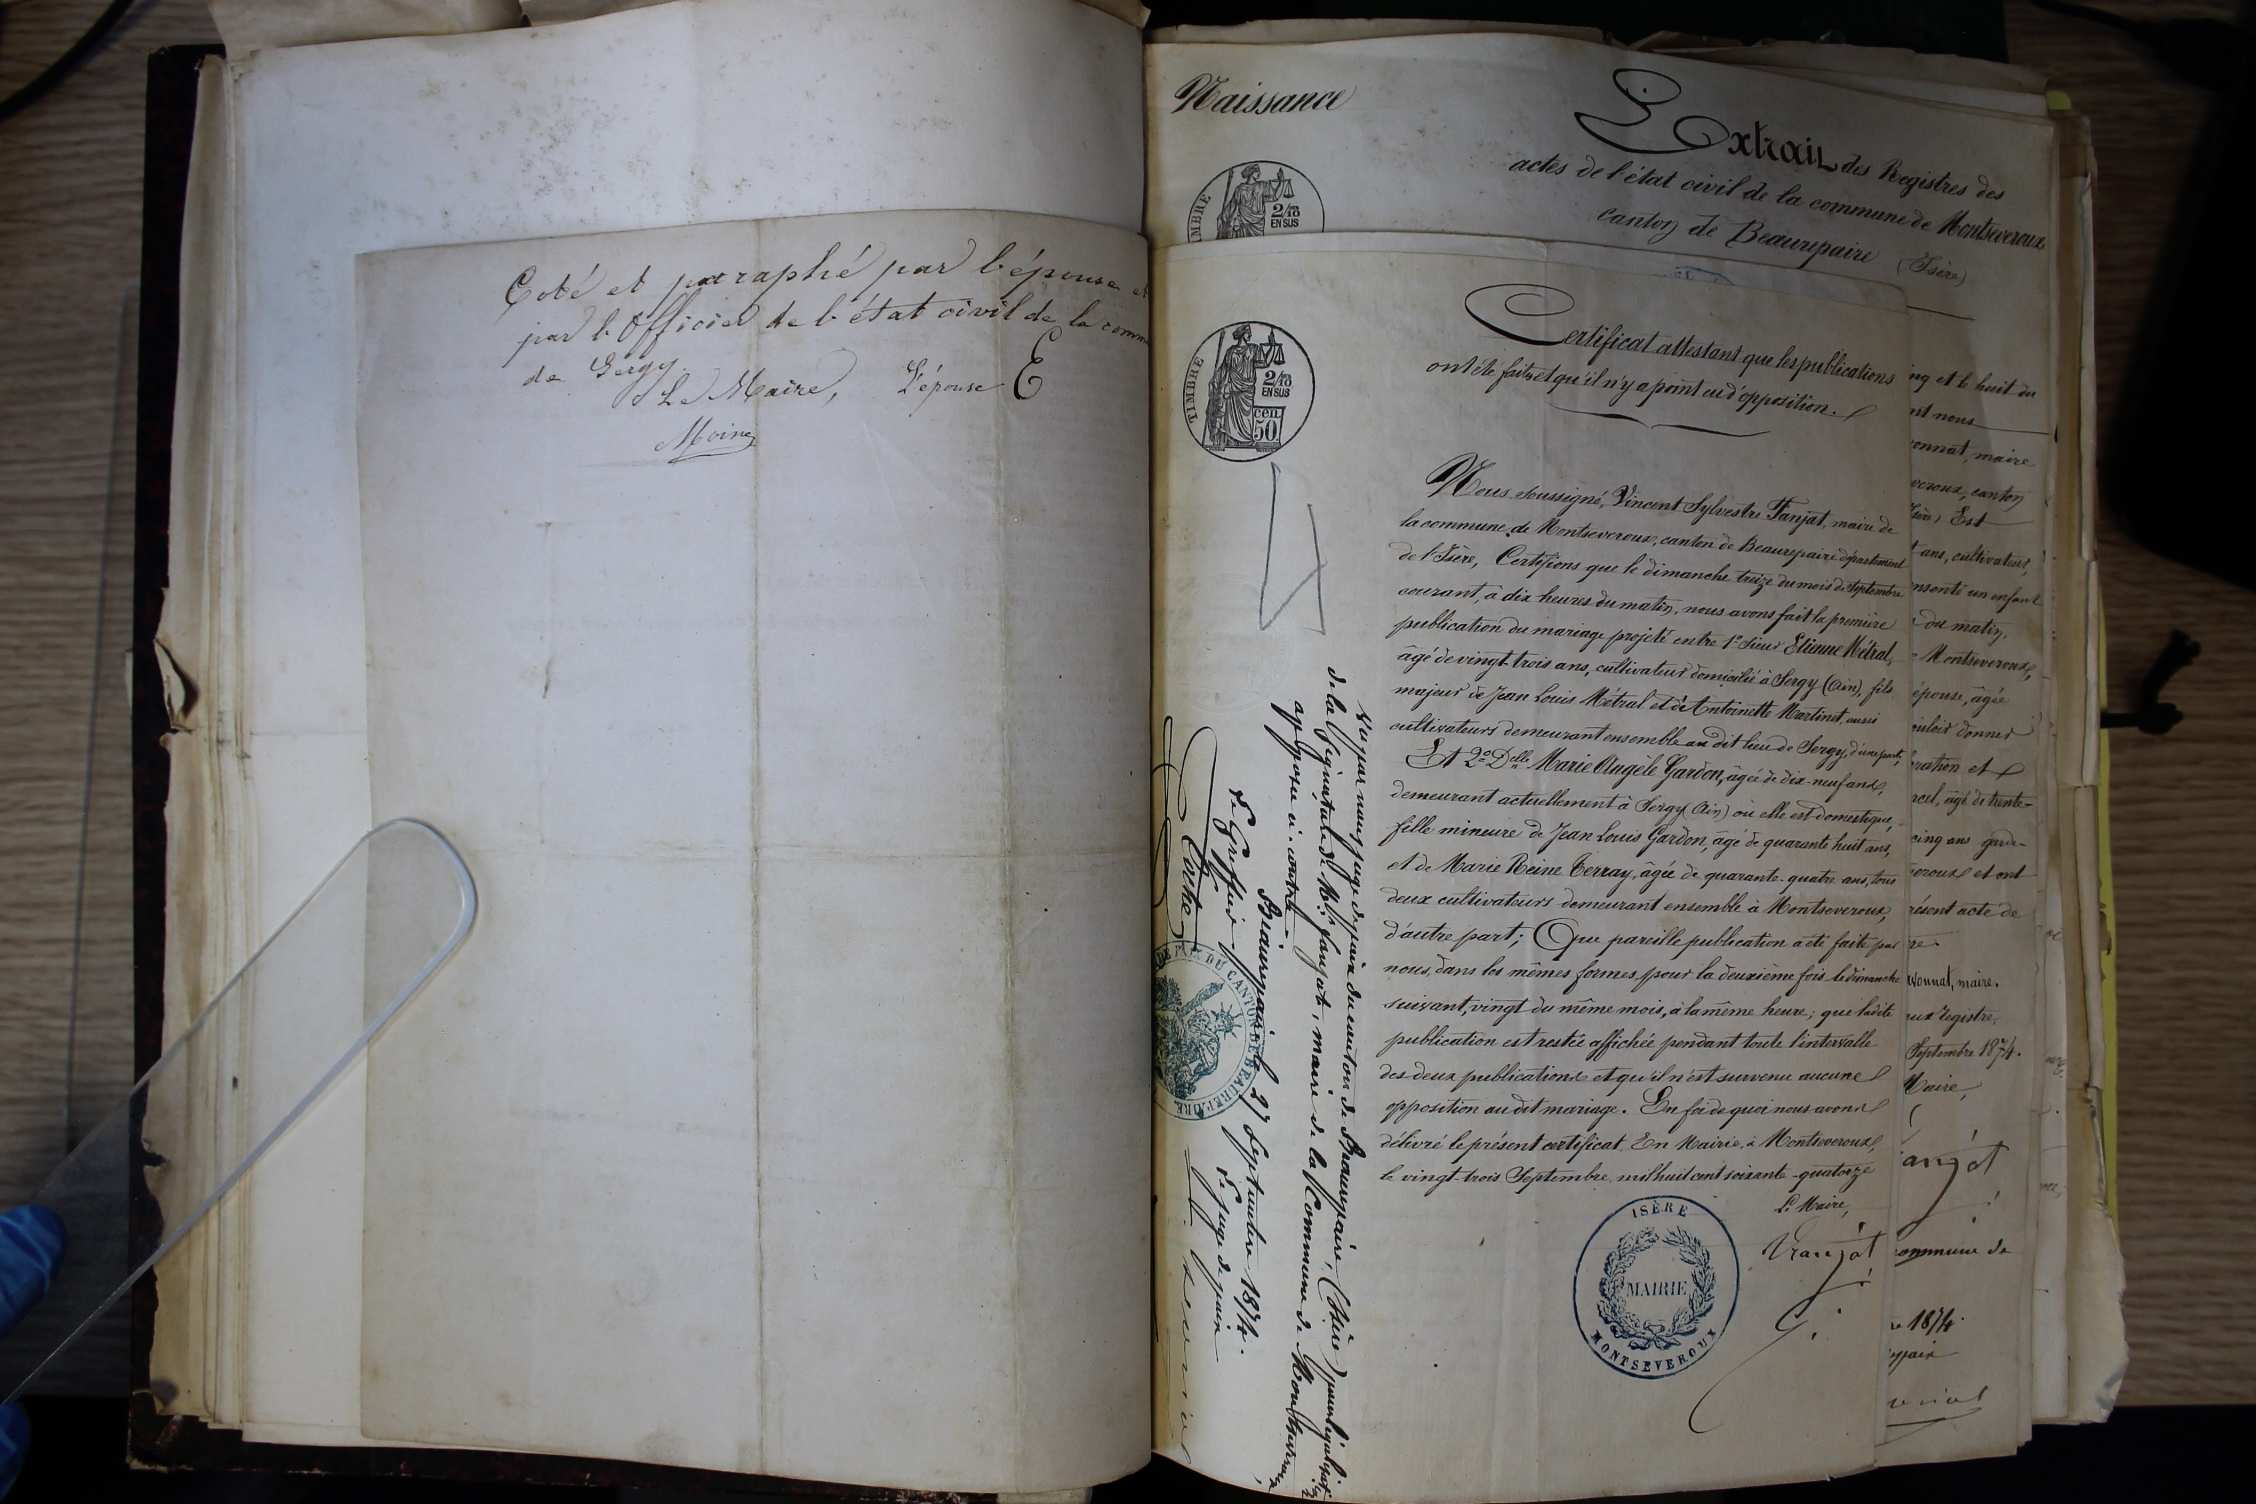 Coté et paraphé par l'épouse et
par l'Officier de l'état civil de la comm
de Sergy.
Le Maire, L'épouse E
Moine
Naissance
Extrait des Registres des
actes de l'état civil de la commune de Montseveroux
canton de Beaurepaire (Isère)
TIMBRE
2/10
EN SUS
TIMBRE
2/10
EN SUS
cen
50
Certificat attestant que les publications
ont été faites et qu'il n'y a point eu d'opposition.
Nous soussigné, Vincent Sylvestre Fanjat, maire de
la commune de Montseveroux, canton de Beaurepaire département
de l'Isère, Certifions que le dimanche treize du mois de Septembre
courant, à dix heures du matin, nous avons fait la première
publication du mariage projeté entre 1° Sieur Etienne Métral,
âgé de vingt-trois ans, cultivateur domicilié à Sergy (Ain), fils
majeur de Jean Louis Métral et de Antoinette Martinet, aussi
cultivateurs demeurant ensemble au dit lieu de Sergy, d'une part,
Et 2° Delle Marie Angèle Gardon, âgée de dix-neuf ans,
demeurant actuellement à Sergy (Ain) où elle est domestique,
fille mineure de Jean Louis Gardon, âgé de quarante huit ans,
et de Marie Reine Terray, âgée de quarante-quatre ans, tous
deux cultivateurs demeurant ensemble à Montseveroux,
d'autre part; Que pareille publication a été faite par
nous, dans les mêmes formes, pour la deuxième fois le dimanche
suivant, vingt du même mois, à la même heure; que ladite
publication est restée affichée pendant toute l'intervalle
des deux publications et qu'il n'est survenu aucune
opposition au dit mariage. En foi de quoi nous avons
délivré le présent certificat. En Mairie, à Montseveroux,
le vingt-trois Septembre mil huit cent soixante-quatorze
Le Maire,
Fanjat
ISÈRE
MAIRIE
MONTSEVEROUX
Vu par nous juge de paix du canton de Beaurepaire, (Isère) pour légalisation
de la signature de Mr. Fanjat, maire de la Commune de Montseveroux
apposée ci-contre.
Beaurepaire le 27 Septembre 1874.
Le Greffier Le juge de paix
DE PAIX DU CANTON DE BEAUREPAIRE
ing et le huit du
nt nous
onnat, maire
veroux, canton
Isère) Est
t ans, cultivateur,
ésenté un enfant
du matin,
Montseveroux,
épouse, âgée
ouloir donner
ration et
rcel, âgé de trente-
cinq ans garde-
veroux et ont
résent acte de
re.
vonnat, maire.
aux registre,
Septembre 1874.
Maire,
anjat
commune de
re 1874.
paix